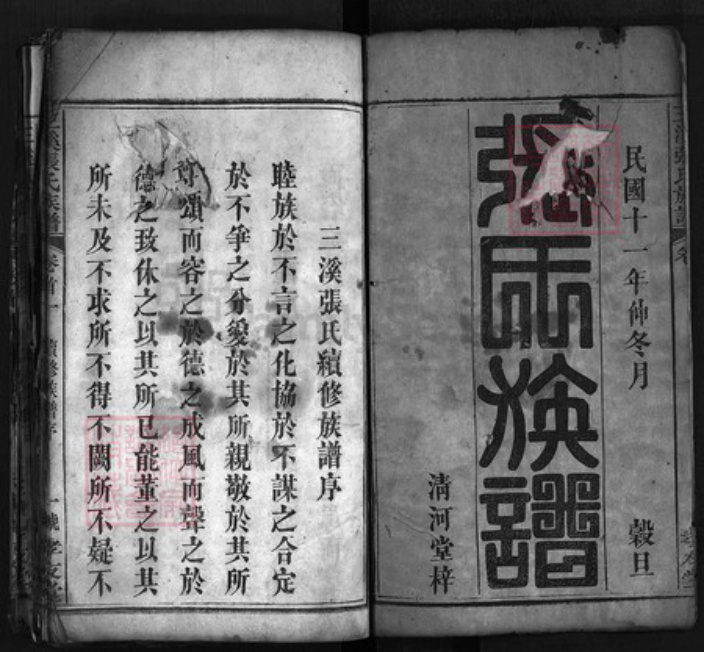 民國十一年仲冬月 穀旦
張氏族譜
清河堂梓
三溪張氏續修族譜序
睦族於不言之化協於不謀之合定
於不爭之分愛於其所親敬於其所
尊頌而容之於德之成風而聲之於
德之致休之以其所已能董之以其
所未及不求所不得不闕所不疑不